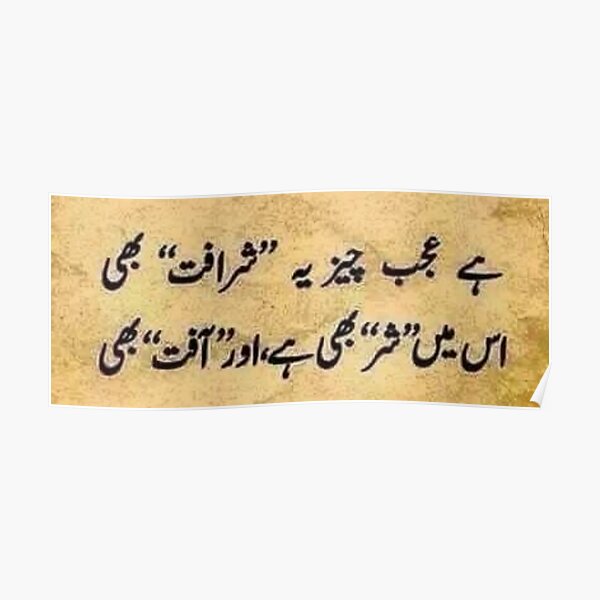 ہے عجب چیز یہ ”شرافت“ بھی
اس میں ”شر“ بھی ہے، اور ”آفت“ بھی